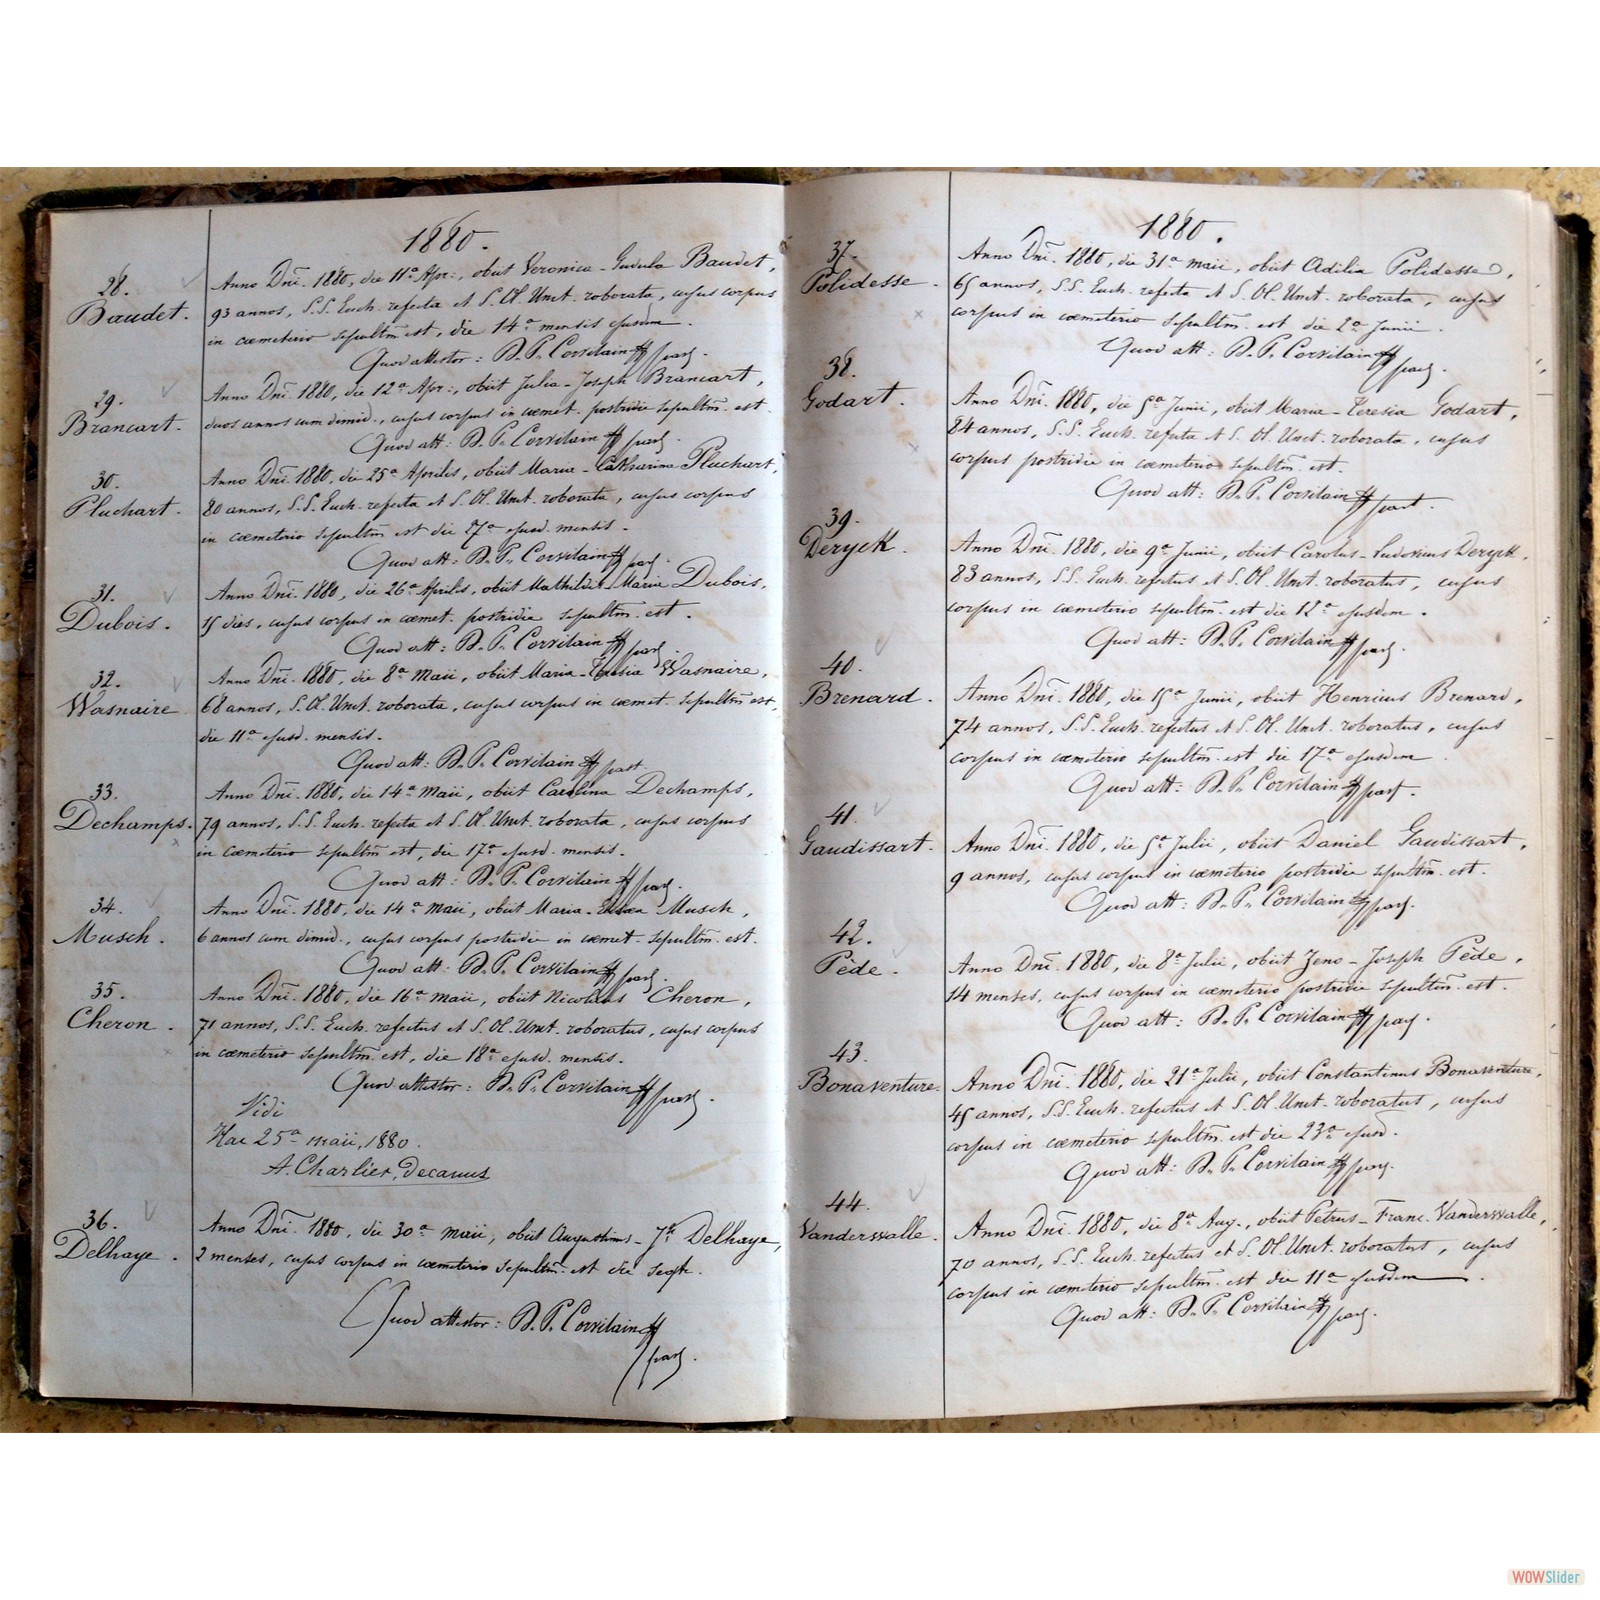 1880.
28.
Baudet.
Anno Dni. 1880, die 11ª Apr:, obiit Veronica-Gudula Baudet,
93 annos, S.S. Euch. refecta et S. Ol. Unct. roborata, cujus corpus
in cœmeterio sepultm est, die 14ª mensis ejusdem.
Quod attestor: D. P. Corvilain past.
29.
Brancart.
Anno Dni. 1880, die 12ª Apr:, obiit Julia-Joseph Brancart,
duos annos cum dimid., cujus corpus in cœmet. postridie sepultm. est.
Quod att: D. P. Corvilain past.
30.
Pluchart.
Anno Dni. 1880, die 25ª Aprilis, obiit Maria-Catharina Pluchart,
80 annos, S.S. Euch. refecta et S. Ol. Unct. roborata, cujus corpus
in cœmeterio sepultm est die 27ª ejusd. mensis.
Quod att: D. P. Corvilain past.
31.
Dubois.
Anno Dni. 1880, die 26ª Aprilis, obiit Mathildis-Maria Dubois,
15 dies, cujus corpus in cœmet. postridie sepultm. est.
Quod att: D. P. Corvilain past.
32.
Wasnaire
Anno Dni. 1880, die 8ª Maii, obiit Maria-Theresia Wasnaire,
68 annos, S. Ol. Unct. roborata, cujus corpus in cœmet. sepultm est,
die 11ª ejusd. mensis.
Quod att: D. P. Corvilain past.
33.
Dechamps.
Anno Dni. 1880, die 14ª Maii, obiit Carolina Dechamps,
79 annos, S.S. Euch. refecta et S. Ol. Unct. roborata, cujus corpus
in cœmeterio sepultm est, die 17ª ejusd. mensis.
Quod att: D. P. Corvilain past.
34.
Musch.
Anno Dni. 1880, die 14ª Maii, obiit Maria- Musch,
6 annos cum dimid., cujus corpus postridie in cœmet. sepultm. est.
Quod att: D. P. Corvilain past.
35.
Cheron.
Anno Dni. 1880, die 16ª Maii, obiit Nicolaus Cheron,
71 annos, S.S. Euch. refectus et S. Ol. Unct. roboratus, cujus corpus
in cœmeterio sepultm. est, die 18ª ejusd. mensis.
Quod attestor: D. P. Corvilain past.
Vidi
Hac 25ª maii, 1880.
A. Charlier, Decanus
36.
Delhaye.
Anno Dni. 1880, die 30ª maii, obiit Augustinus- Delhaye,
2 menses, cujus corpus in cœmeterio sepultm. est die seqte.
Quod attestor: D. P. Corvilain
past.
1880.
37.
Polidesse.
Anno Dni. 1880, die 31ª maii, obiit Adilia Polidesse,
65 annos, S.S. Euch. refecta et S. Ol. Unct. roborata, cujus
corpus in cœmeterio sepultm. est die 2ª Junii.
Quod att: D. P. Corvilain
past.
38.
Godart.
Anno Dni. 1880, die 5ª Junii, obiit Maria-Teresia Godart,
84 annos, S.S. Euch. refecta et S. Ol. Unct. roborata, cujus
corpus postridie in cœmeterio sepultm. est.
Quod att: D. P. Corvilain
past.
39.
Deryck.
Anno Dni. 1880, die 9ª Junii, obiit Carolus-Ludovicus Deryck.
83 annos, S.S. Euch. refectus et S. Ol. Unct. roboratus, cujus
corpus in cœmeterio sepultm. est die 12ª ejusdem.
Quod att: D. P. Corvilain past.
40.
Brenard.
Anno Dni. 1880, die 15ª Junii, obiit Henricus Brenard,
74 annos, S.S. Euch. refectus et S. Ol. Unct. roboratus, cujus
corpus in cœmeterio sepultm. est die 17ª ejusdem
Quod att: D. P. Corvilain past.
41.
Gaudissart.
Anno Dni. 1880, die 5ª Julii, obiit Daniel Gaudissart,
9 annos, cujus corpus in cœmeterio postridie sepultm. est.
Quod att: D. P. Corvilain past.
42.
Pède.
Anno Dni. 1880, die 8ª Julii, obiit Zeno-Joseph Pède,
14 menses, cujus corpus in cœmeterio postridie sepultm. est.
Quod att: D. P. Corvilain past.
43.
Bonaventure.
Anno Dni. 1880, die 21ª Julii, obiit Constantinus Bonaventure,
45 annos, S.S. Euch. refectus et S. Ol. Unct. roboratus, cujus
corpus in cœmeterio sepultm. est die 23ª ejusd.
Quod att: D. P. Corvilain past.
44.
Vanderwalle.
Anno Dni. 1880, die 8ª Aug., obiit Petrus-Franc. Vanderwalle,
70 annos, S.S. Euch. refectus et S. Ol. Unct. roboratus, cujus
corpus in cœmeterio sepultm. est die 11ª ejusdem.
Quod att: D. P. Corvilain past.
WOWSlider